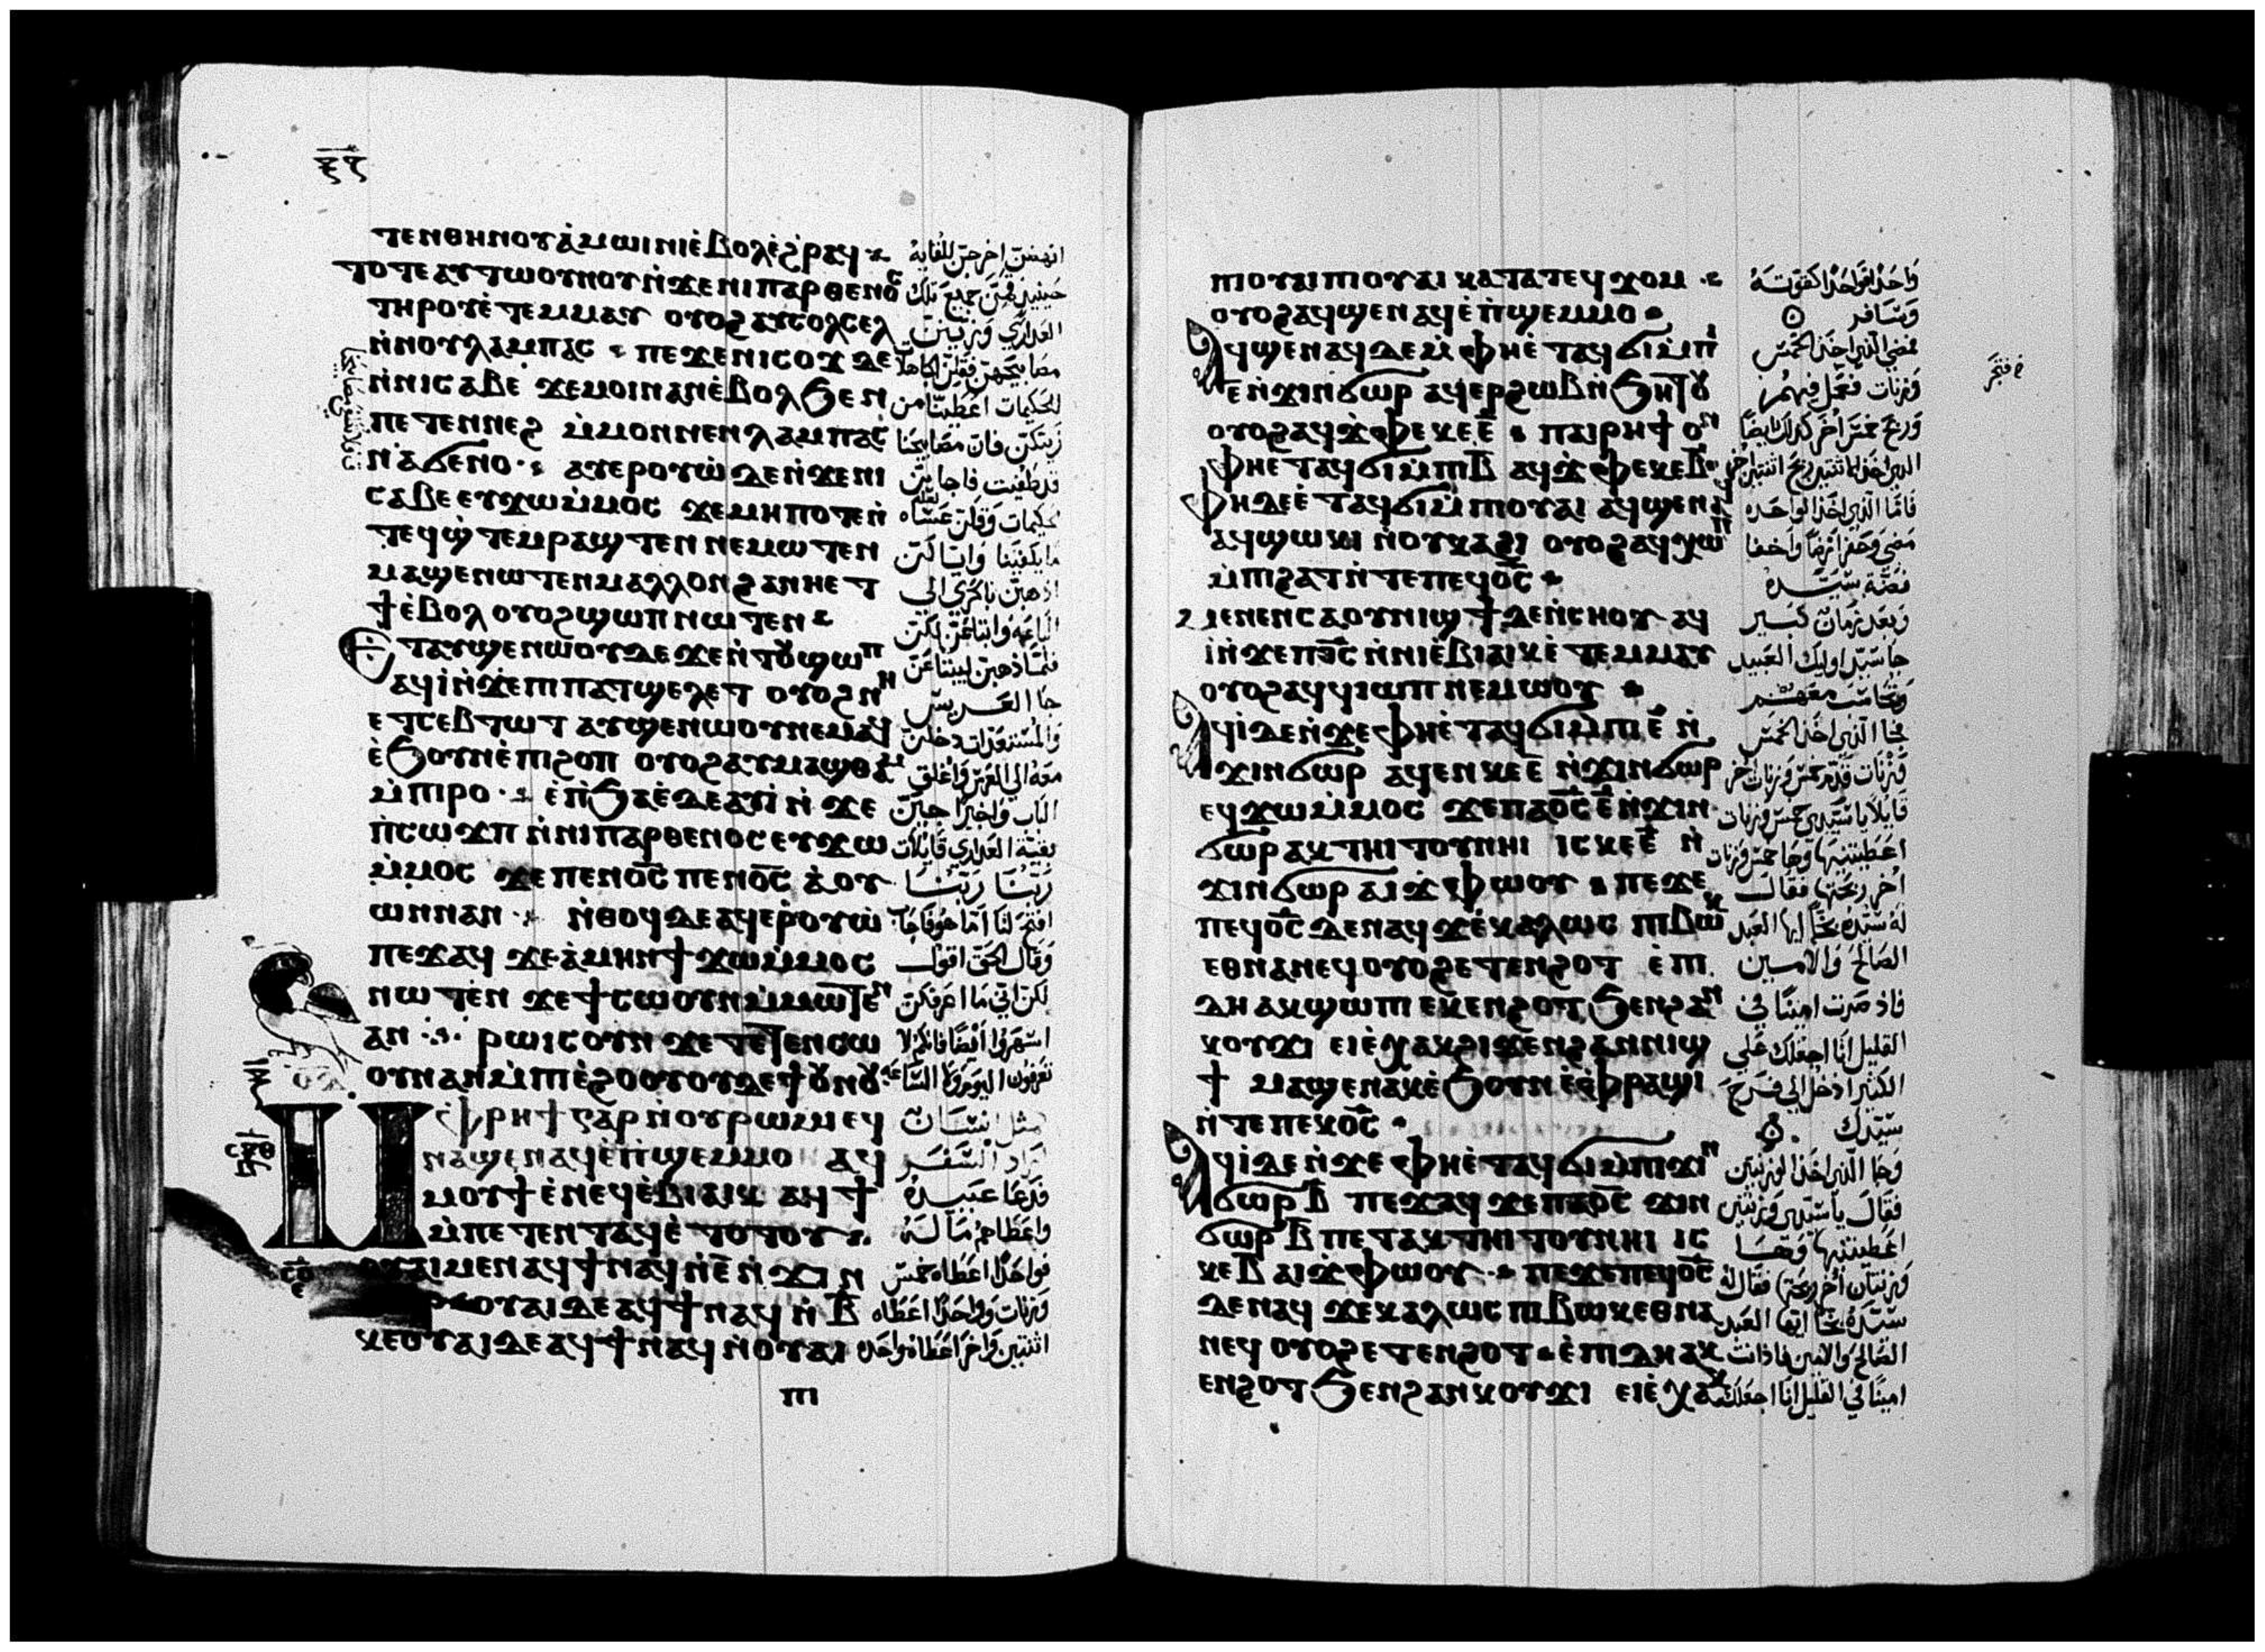 ⲧⲉⲛⲑⲏⲛⲟⲩ ⲁ̇ⲙⲱⲓⲛⲓ ⲉ̇ⲃⲟⲗ ⲉ̇ϩ̇ⲣⲁϥ
ⲧⲟⲧⲉ ⲁⲩⲧⲱⲟⲩⲛⲟⲩ ⲛ̇ϫⲉ ⲛⲓⲡⲁⲣⲑⲉⲛⲟⲥ
ⲧⲏⲣⲟⲩ ⲉ̇ⲧⲉⲙⲙⲁⲩ ⲟⲩⲟϩ ⲁⲩⲥⲟⲗⲥⲉⲗ
ⲛ̇ⲛⲟⲩⲗⲁⲙⲡⲁⲥ ⲡⲉϫⲉ ⲛⲓⲥⲟϫ ⲇⲉ
ⲛ̇ⲛⲓⲥⲁⲃⲉ ϫⲉ ⲙⲟⲓ ⲛⲁⲛ ⲉ̇ⲃⲟⲗϧⲉⲛ
ⲡⲉⲧⲉⲛⲛⲉϩ ⲙ̇ⲙⲟⲛ ⲛⲉⲛⲗⲁⲙⲡⲁⲥ
ⲛⲁϭⲉⲛⲟ ⲁⲩⲉⲣⲟⲩⲱ̇ ⲇⲉ ⲛ̇ϫⲉ ⲛⲓ
ⲥⲁⲃⲉ ⲉⲩϫⲱ ⲙ̇ⲙⲟⲥ ϫⲉ ⲙⲏⲡⲟⲧⲉ ⲛ̇
ⲧⲉϥϣ̇ⲧⲉⲙⲣⲁϣⲧⲉⲛ ⲛⲉⲙⲱⲧⲉⲛ
ⲙⲁϣⲉⲛⲱⲧⲉⲛ ⲙⲁⲗⲗⲟⲛ ϩⲁ ⲛⲏⲉⲧ
ϯ ⲉ̇ⲃⲟⲗ ⲟⲩⲟϩ ϣⲱⲡ ⲛⲱⲧⲉⲛ
ⲉⲧⲁⲩϣⲉⲛⲱⲟⲩ ⲇⲉ ϫⲉ ⲛ̇ⲧⲟⲩϣⲱⲡ
ⲁϥⲓ̇ ⲛ̇ϫⲉ ⲡⲓⲡⲁⲧϣⲉⲗⲉⲧ ⲟⲩⲟϩ ⲛⲏ
ⲉⲧⲥⲉⲃⲧⲱⲧ ⲁⲩϣⲉⲛⲱⲟⲩ ⲛⲉⲙⲁϥ
ⲉ̇ϧⲟⲩⲛ ⲉ̇ⲡⲓϩⲟⲡ ⲟⲩⲟϩ ⲁⲩⲙⲁϣⲑⲁⲙ
ⲙ̇ⲡⲓⲣⲟ ⲉ̇ⲡ̇ϧⲁⲉ̇ ⲇⲉ ⲁⲩⲓ̇ ⲛ̇ϫⲉ
ⲡ̇ⲥⲱϫⲡ ⲛ̇ⲛⲓⲡⲁⲣⲑⲉⲛⲟⲥ ⲉⲩϫⲱ
ⲙ̇ⲙⲟⲥ ϫⲉ ⲡⲉⲛⲟ̅ⲥ̅ ⲡⲉⲛⲟ̅ⲥ̅ ⲁ̇ⲟⲩ
ⲱⲛ ⲛⲁⲛ ⲛ̇ⲑⲟϥ ⲇⲉ ⲁϥⲉⲣⲟⲩⲱ̇
ⲡⲉϫⲁϥ ϫⲉ ⲁ̇ⲙⲏⲛ ϯϫⲱ ⲙ̇ⲙⲟⲥ
ⲛⲱⲧⲉⲛ ϫⲉ ϯⲥⲱⲟⲩⲛ ⲙ̇ⲙⲱⲧⲉⲛ
ⲁⲛ ⲣⲱⲓⲥ ⲟⲩⲛ ϫⲉ ⲧⲉⲧⲉⲛⲥⲱ
ⲟⲩⲛ ⲁⲛ ⲙ̇ⲡⲓⲉ̇ϩⲟⲟⲩ ⲟⲩⲇⲉ ϯⲟⲩⲛⲟⲩ
ⲙ̇ⲫ̇ⲣⲏϯ ⲅⲁⲣ ⲛ̇ⲟⲩⲣⲱⲙⲓ ⲉϥ
ⲛⲁϣⲉⲛⲁϥ ⲉ̇ⲡ̇ϣⲉⲙⲙⲟ ⲁϥ
ⲙⲟⲩϯ ⲉ̇ⲛⲉϥⲉ̇ⲃⲓⲁⲓⲕ ⲁϥϯ
ⲙ̇ⲡⲉⲧⲉⲛⲧⲁϥ ⲉ̇ⲧⲟⲧⲟⲩ
ⲟⲩⲁⲓ ⲙⲉⲛ ⲁϥϯ ⲛⲁϥ ⲛ̇ⲉ̅ ⲛ̇ϫⲓⲛ
ⲟⲩⲁⲓ ⲇⲉ ⲁϥϯ ⲛⲁϥ ⲛ̇ⲃ̅
ⲕⲉⲟⲩⲁⲓ ⲇⲉ ⲁϥϯ ⲛⲁϥ ⲛ̇ⲟⲩⲁⲓ
ⲡⲓ
انهضن اخرجن للقايه
حينيذ قمن جميع تلك
العذاري وزين
مصابيحهن فقلن الجاهلات
للحكيمات اعطيننا من
زيتكن فان مصابيحنا
قد طفيت فاجابن
الحكيمات وقلن عساه
ما يكفينا واياكن
اذهبن باكري الي
الباعه وابتاعن لكن
فلما ذهبن ليبتاعن
جا العريس
والمستعدات دخلن
معه الي العرس واغلق
الباب واخيرا جين
بقية العذاري قايلات
ربنا ربنا
افتح لنا اما هو فاجاب
وقال الحق اقول
لكن اني ما اعرفكن
اسهروا ايضا فانكم لا
تعرفون اليوم ولا الساعه
مثل انسان
اراد السفر
فدعا عبيده
واعطاهم ماله
فواحدا اعطاه خمس
وزنات وواحدا اعطاه
اثنتين واخر اعطاه واحده
ⲡⲓⲟⲩⲁⲓ ⲡⲓⲟⲩⲁⲓ ⲕⲁⲧⲁ ⲧⲉϥϫⲟⲙ
ⲟⲩⲟϩ ⲁϥϣⲉⲛⲁϥ ⲉ̇ⲡ̇ϣⲉⲙⲙⲟ
ⲁϥϣⲉⲛⲁϥ ⲇⲉ ⲛ̇ϫⲉ ⲫⲏⲉ̇ⲧⲁϥϭⲓ ⲙ̇ⲡⲓ
ⲉ̅ ⲛ̇ϫⲓⲛϭⲱⲣ ⲁϥⲉⲣϩⲱⲃ ⲛ̇ϧⲏⲧⲟⲩ
ⲟⲩⲟϩ ⲁϥϫ̇ⲫⲉ ⲕⲉⲉ̅ ⲡⲁⲓⲣⲏϯ ⲟⲛ
ⲫⲏⲉⲧⲁϥϭⲓ ⲙ̇ⲡⲓⲃ̅ ⲁϥϫ̇ⲫⲉ ⲕⲉⲃ̅
ⲫⲏ ⲇⲉ ⲉ̇ⲧⲁϥϭⲓ ⲙ̇ⲡⲓⲟⲩⲁⲓ ⲁϥϣⲉⲛⲁϥ
ⲁϥϣⲱⲕⲓ ⲛ̇ⲟⲩⲕⲁϩⲓ ⲟⲩⲟϩ ⲁϥⲭⲱⲡ
ⲙ̇ⲡⲓϩⲁⲧ ⲛ̇ⲧⲉ ⲡⲉϥⲟ̅ⲥ̅
ⲙⲉⲛⲉⲛⲥⲁ ⲟⲩⲛⲓϣϯ ⲇⲉ ⲛ̇ⲥⲏⲟⲩ ⲁϥ
ⲓ̇ ⲛ̇ϫⲉ ⲡⲟ̅ⲥ̅ ⲛ̇ⲛⲓⲉ̇ⲃⲓⲁⲓⲕ ⲉ̇ⲧⲉⲙⲙⲁⲩ
ⲟⲩⲟϩ ⲁϥϥⲓⲱⲡ ⲛⲉⲙⲱⲟⲩ
ⲁϥⲓ̇ ⲇⲉ ⲛ̇ϫⲉ ⲫⲏⲉ̇ⲧⲁϥϭⲓ ⲙ̇ⲡⲓⲉ̅ ⲛ̇
ϫⲓⲛϭⲱⲣ ⲁϥⲉⲛ ⲕⲉⲉ̅ ⲛ̇ϫⲓⲛϭⲱⲣ
ⲉϥϫⲱ ⲙ̇ⲙⲟⲥ ϫⲉ ⲡⲁⲟ̅ⲥ̅ ⲉ̅ ⲛ̇ϫⲓⲛ
ϭⲱⲣ ⲁⲕⲧⲏⲓⲧⲟⲩ ⲛⲏⲓ ⲓⲥ ⲕⲉⲉ̅ ⲛ̇
ϫⲓⲛϭⲱⲣ ⲁⲓϫ̇ⲫⲱⲟⲩ ⲡⲉϫⲉ
ⲡⲉϥⲟ̅ⲥ̅ ⲇⲉ ⲛⲁϥ ϫⲉ ⲕⲁⲗⲱⲥ ⲡⲓⲃⲱⲕ
ⲉⲑⲛⲁⲛⲉϥ ⲟⲩⲟϩ ⲉⲧⲉⲛϩⲟⲧ ⲉ̇ⲡⲓ
ⲇⲏ ⲁⲕϣⲱⲡⲓ ⲉⲕⲉⲛϩⲟⲧ ϧⲉⲛ ϩⲁⲛ
ⲕⲟⲩϫⲓ ⲉⲓⲉ̇ⲭⲁⲕ ϩⲓϫⲉⲛ ϩⲁⲛⲛⲓϣ
ϯ ⲙⲁϣⲉⲛⲁⲕ ⲉ̇ϧⲟⲩⲛ ⲉ̇ⲫ̇ⲣⲁϣⲓ
ⲛ̇ⲧⲉ ⲡⲉⲕⲟ̅ⲥ̅
ⲁϥⲓ̇ ⲇⲉ ⲛ̇ϫⲉ ⲫⲏⲉ̇ⲧⲁϥϭⲓ ⲙ̇ⲡⲓϫⲓⲛ
ϭⲱⲣ ⲃ̅ ⲡⲉϫⲁϥ ϫⲉ ⲡⲁⲟ̅ⲥ̅ ϫⲓⲛ
ϭⲱⲣ ⲃ̅ ⲡⲉⲧⲁⲕⲧⲏⲓⲧⲟⲩ ⲛⲏⲓ ⲓⲥ
ⲕⲉⲃ̅ ⲁⲓϫ̇ⲫⲱⲟⲩ ⲡⲉϫⲉ ⲡⲉϥⲟ̅ⲥ̅
ⲇⲉ ⲛⲁϥ ϫⲉ ⲕⲁⲗⲱⲥ ⲡⲓⲃⲱⲕ ⲉⲑⲛⲁ
ⲛⲉϥ ⲟⲩⲟϩ ⲉⲧⲉⲛϩⲟⲧ ⲉ̇ⲡⲓⲇⲏ ⲁⲕ
ⲉⲛϩⲟⲧ ϧⲉⲛ ϩⲁⲛⲕⲟⲩϫⲓ ⲉⲓⲉ̇ⲭⲁⲕ
واحدا فواحدا كقوته
وسافر
فمضي الذي اخذ الخمس
وزنات فعمل فيهم
وربح خمس اخر كذلك ايضا
الذي اخذ اثنتين ربح اثنتين اخر
فاما الذي اخذ الواحده
مضي وحفر ارضا واخفا
فضة سيده
وبعد زمان كبير
جا سيد اوليك العبيد
وتحاسب معهم
فجا الذي اخذ الخمس
وزنات قدم خمس وزنات اخر
قايلا يا سيدي خمس وزنات
اعطيتنيها وها خمس وزنات
اخر ربحتها فقال
له سيده نعما ايها العبد
الصالح والامين
فاذ صرت امينا في
القليل انا اجعلك علي
الكثير ادخل الي فرح
سيدك
وجا الذي اخذ الوزنتين
فقال يا سيدي وزنتين
اعطيتنيها وها
وزنتان اخر ربحتها فقال له
سيده نعما ايها العبد
الصالح والامين فاذ انت
امينا في القليل انا اجعلك